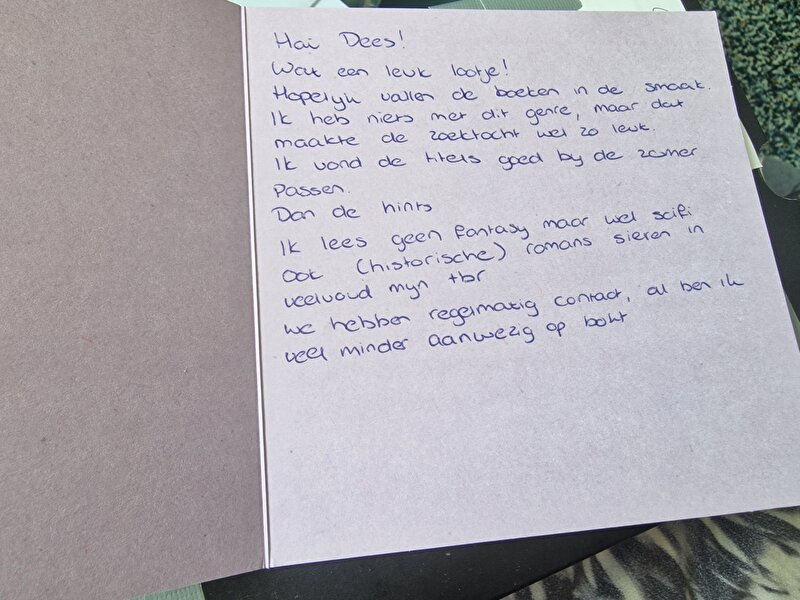 Hai Dees!
Wat een leuk lootje!
Hopelyk vallen de boeken in de smaak.
Ik heb niets met dit genre, maar dat
maakte de zoektocht wel zo leuk.
Ik vond de titels goed by de zomer
passen.
Dan de hints
Ik lees geen fantasy maar wel scifi
ook (historische) romans sieren in
veelvoud myn tbr
we hebben regelmatig contact, al ben ik
veel minder aanwezig op bokt